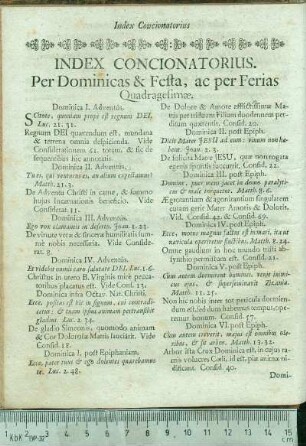 Index Concionatorius
INDEX CONCIONATORIUS.
Per Dominicas & Festa, ac per Ferias
Quadragesimæ.
Dominica I. Adventus.
Scitote, quoniam prope est regnum DEI,
Luc. 21. 31.
Regnum DEI quærendum est, mundana
& terrena omnia despicienda. Vide
Considerationem 61. totam, & sic de
sequentibus hic annotatis.
Dominica II. Adventus.
Tu es, qui venturus es, an alium expectamus?
Matth. 11. 3.
De Adventu Christi in carne, & summo
hujus Incarnationis beneficio. Vide
Considerat.
Dominica III. Adventus.
Ego vox clamantis in deserto. Joan. 1. 23.
De virtute vera & sincera humilitatis sum-
mè nobis necessaria. Vide Conside-
rat.
Dominica IV. Adventus.
Et videbit omnis caro salutare DEI. Luc. 3. 6.
Christus in utero B. Virginis miræ
portationis vide placatus est. Vide Cons.
Dominica infra Octav. Nat. Christi.
Ecce, positus est hic in signum, cui contradi-
cetur; & tuam ipsius animam pertransibit
gladius. Luc. 2. 34.
De gladio Simeonis, quomodo animam
& Cor Dolorosæ Matris sauciavit. Vide
Consid.
Dominica I. post Epiphaniam.
Ecce, pater tuus & ego dolentes quærebamus
te. Luc. 2. 48.
De Dolore & Amore afflictissimæ Ma-
tris per triduum Filium duodennem per-
ditum quærentis. Consid.
Dominica II. post Epiph.
Dicit Mater JESU ad eum: vinum non ha-
bent. Joan. 2. 3.
De felicissima Matre JESU, quæ non rogata
egenis sponsis succurrit. Consid.
Dominica III. post Epiph.
Domine, puer meus jacet in domo paralyti-
cus & malè torquetur. Matth. 8. 6.
Ægrotantium & agonizantium singularem
curam gerit Mater Amoris & Doloris.
Vid. Consid. 42. & Consid. 69.
Dominica IV. post Epiph.
Ecce, motus magnus factus est in mari, ita ut
navicula operiretur fluctibus. Matth. 8. 24.
Omne gaudium in hoc mundo tristi ab-
synthio permixtum est. Consid.
Dominica V. post Epiph.
Cum autem dormirent homines, venit inimi-
cus ejus, & superseminavit Zizania.
Matth.
Non his nobis inter tot pericula dormien-
dum est, sed dum habemus tempus, ope-
remur bonum. Consid.
Dominica VI. post Epiph.
Cum autem creverit, majus est omnibus ole-
ribus, & fit arbor. Matth. 13. 32.
Arbor ista Crux Dominica est, in cujus ra-
mis volucres Cœli, id est, piæ animæ re-
quiescunt. Consid.
Domi-